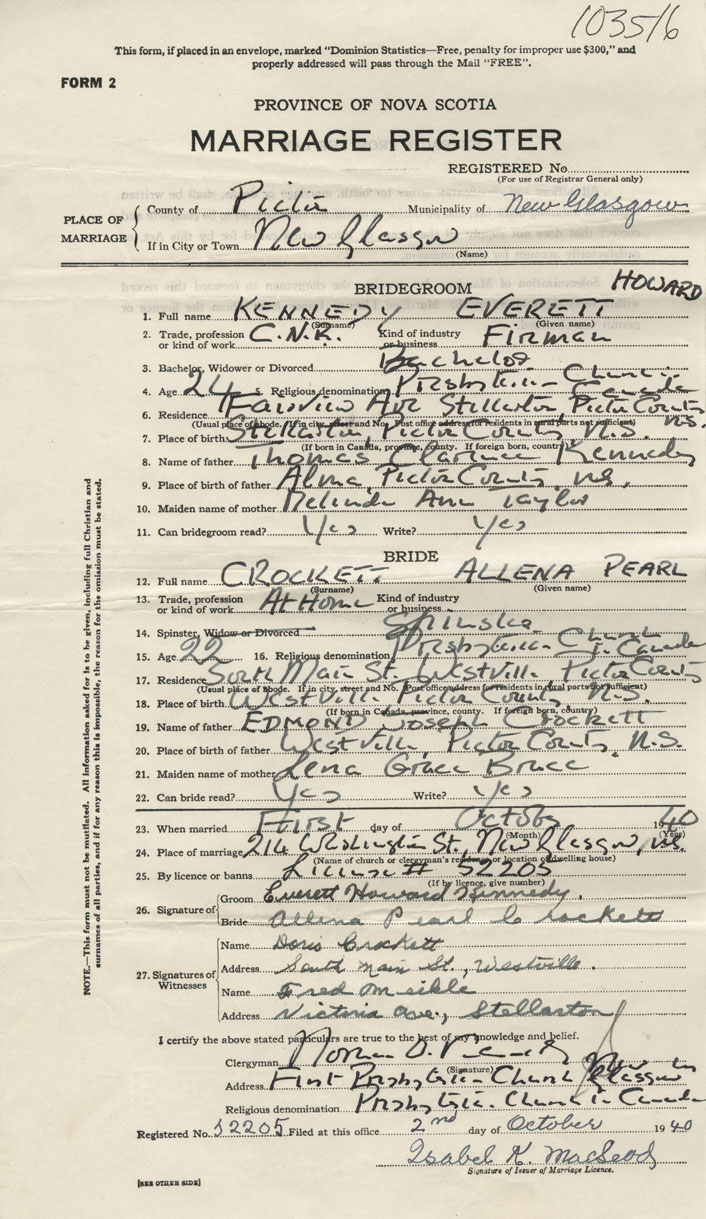 103516
This form, if placed in an envelope, marked "Dominion Statistics—Free, penalty for improper use $300," and
properly addressed will pass through the Mail "FREE".
FORM 2
PROVINCE OF NOVA SCOTIA
MARRIAGE REGISTER
REGISTERED No.
(For use of Registrar General only)
PLACE OF MARRIAGE
County of Pictou Municipality of New Glasgow
If in City or Town New Glasgow
(Name)
BRIDEGROOM
HOWARD
1. Full name KENNEDY EVERETT
(Surname) (Given name)
2. Trade, profession or kind of work C.N.R. Kind of industry or business Firman
3. Bachelor, Widower or Divorced Bachelor
4. Age 24 5. Religious denomination Presbyterian Church in Canada
6. Residence Fairview Ave Stellarton, Pictou County N.S.
(Usual place of abode. If in city, street and No. Post office address for residents in rural parts not sufficient)
7. Place of birth Stellarton, Pictou County, N.S.
(If born in Canada, province, county. If foreign born, country)
8. Name of father Thomas Clarence Kennedy
9. Place of birth of father Alma, Pictou County, N.S.
10. Maiden name of mother Melinda Ann Taylor
11. Can bridegroom read? Yes Write? Yes
BRIDE
12. Full name CROCKETT ALLENA PEARL
(Surname) (Given name)
13. Trade, profession or kind of work At Home Kind of industry or business
14. Spinster, Widow or Divorced Spinster
15. Age 22 16. Religious denomination Presbyterian Church in Canada
17. Residence South Main St. Westville, Pictou County
(Usual place of abode. If in city, street and No. Post office address for residents in rural parts not sufficient)
18. Place of birth Westville, Pictou County, N.S.
(If born in Canada, province, county. If foreign born, country)
19. Name of father EDMOND Joseph Crockett
20. Place of birth of father Westville, Pictou County, N.S.
21. Maiden name of mother Lena Grace Bruce
22. Can bride read? Yes Write? Yes
23. When married First day of October 1940
(Month) (Year)
24. Place of marriage 214 Washington St., New Glasgow, N.S.
(Name of church or clergyman's residence or location of dwelling house)
25. By licence or banns License # 52205
(If by licence, give number)
26. Signature of
Groom Everett Howard Kennedy
Bride Allena Pearl Crockett
27. Signatures of Witnesses
Name Doris Crockett
Address South Main St., Westville.
Name Fred Meikle
Address Victoria Ave., Stellarton
I certify the above stated particulars are true to the best of my knowledge and belief.
Clergyman Norman D.
(Signature)
Address First Presbyterian Church New Glasgow
Religious denomination Presbyterian Church in Canada
Registered No. 52205 Filed at this office 2nd day of October 1940
Isabel K. MacLeod
Signature of Issuer of Marriage Licence.
[SEE OTHER SIDE]
NOTE.—This form must not be mutilated. All information asked for is to be given, including full Christian and
surnames of all parties, and if for any reason this is impossible, the reason for the omission must be stated.